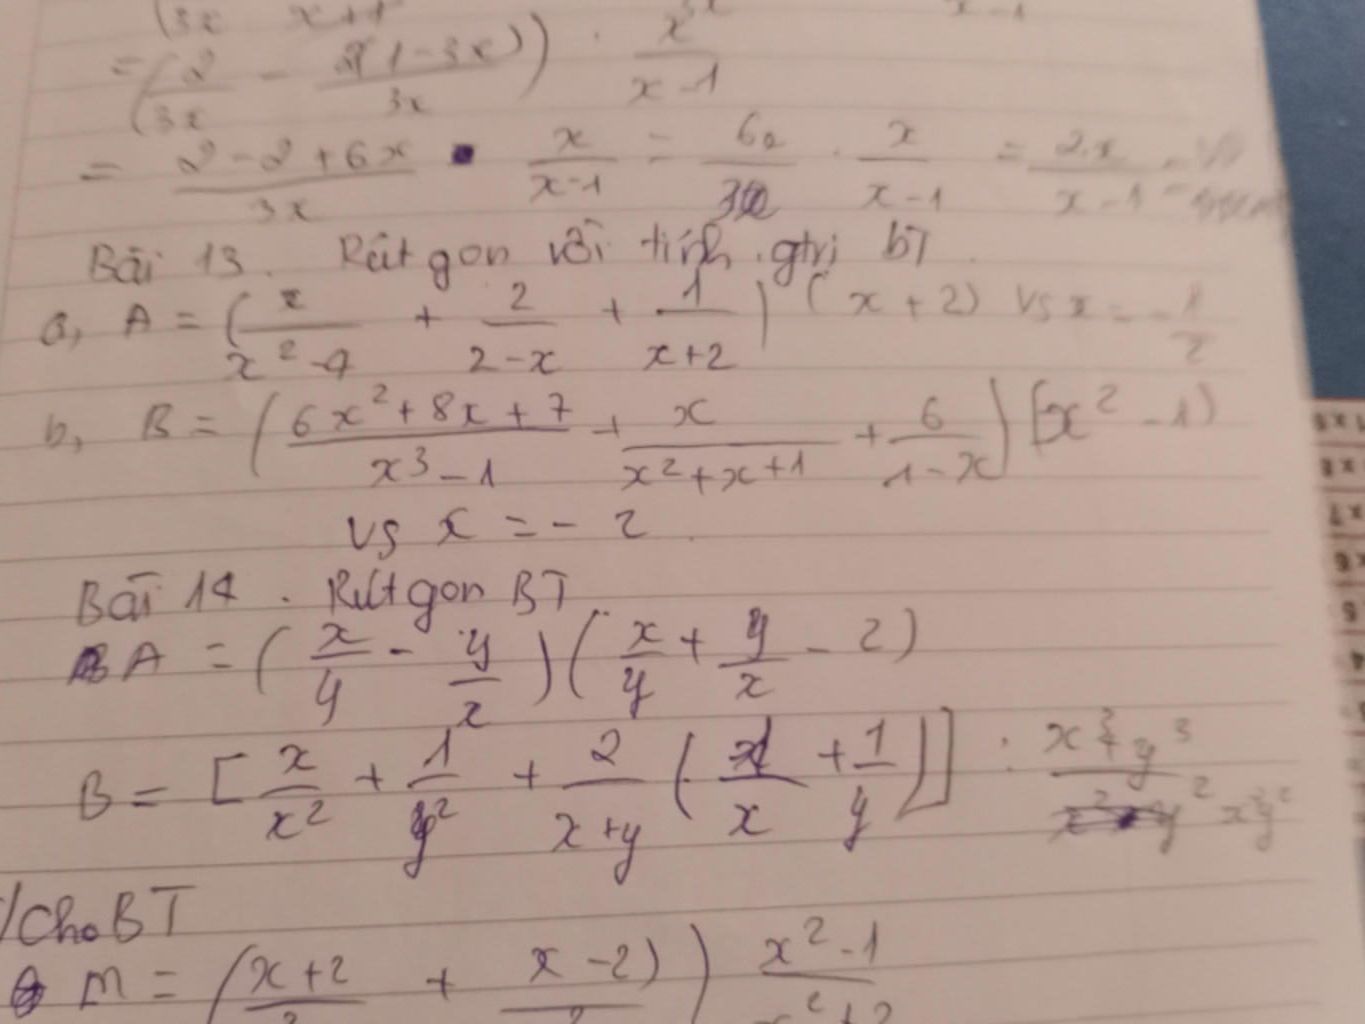 = (2/3x - 2(1-3x)/3x) . x/x-1
= 2-2+6x/3x . x/x-1 = 6x/3x . x/x-1 = 2x/x-1
Bài 13. Rút gọn rồi tính gtrị bT
a, A = (x/x²-4 + 2/2-x + 1/x+2) (x+2) vs x = -1/2
b, B = (6x²+8x+7/x³-1 + x/x²+x+1 + 6/1-x) (x²-1)
vs x = -2
Bài 14. Rút gọn BT
A = (x/y - y/x) (x/y + y/x - 2)
B = [x/x² + 1/y² + 2/x+y (1/x + 1/y)] : x³+y³/x²y²
/Cho BT
M = (x+2 + x-2) x²-1